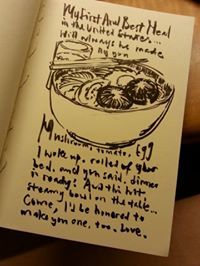 My First And Best Meal
in the United States...
Will always be made
by you
Mushroom, tomato, Egg
I woke up, rolled of your
bed, and you said, dinner
is ready! And this hot
steamy bowl on the table...
Come, I'll be honored to
make you one, too. Love.